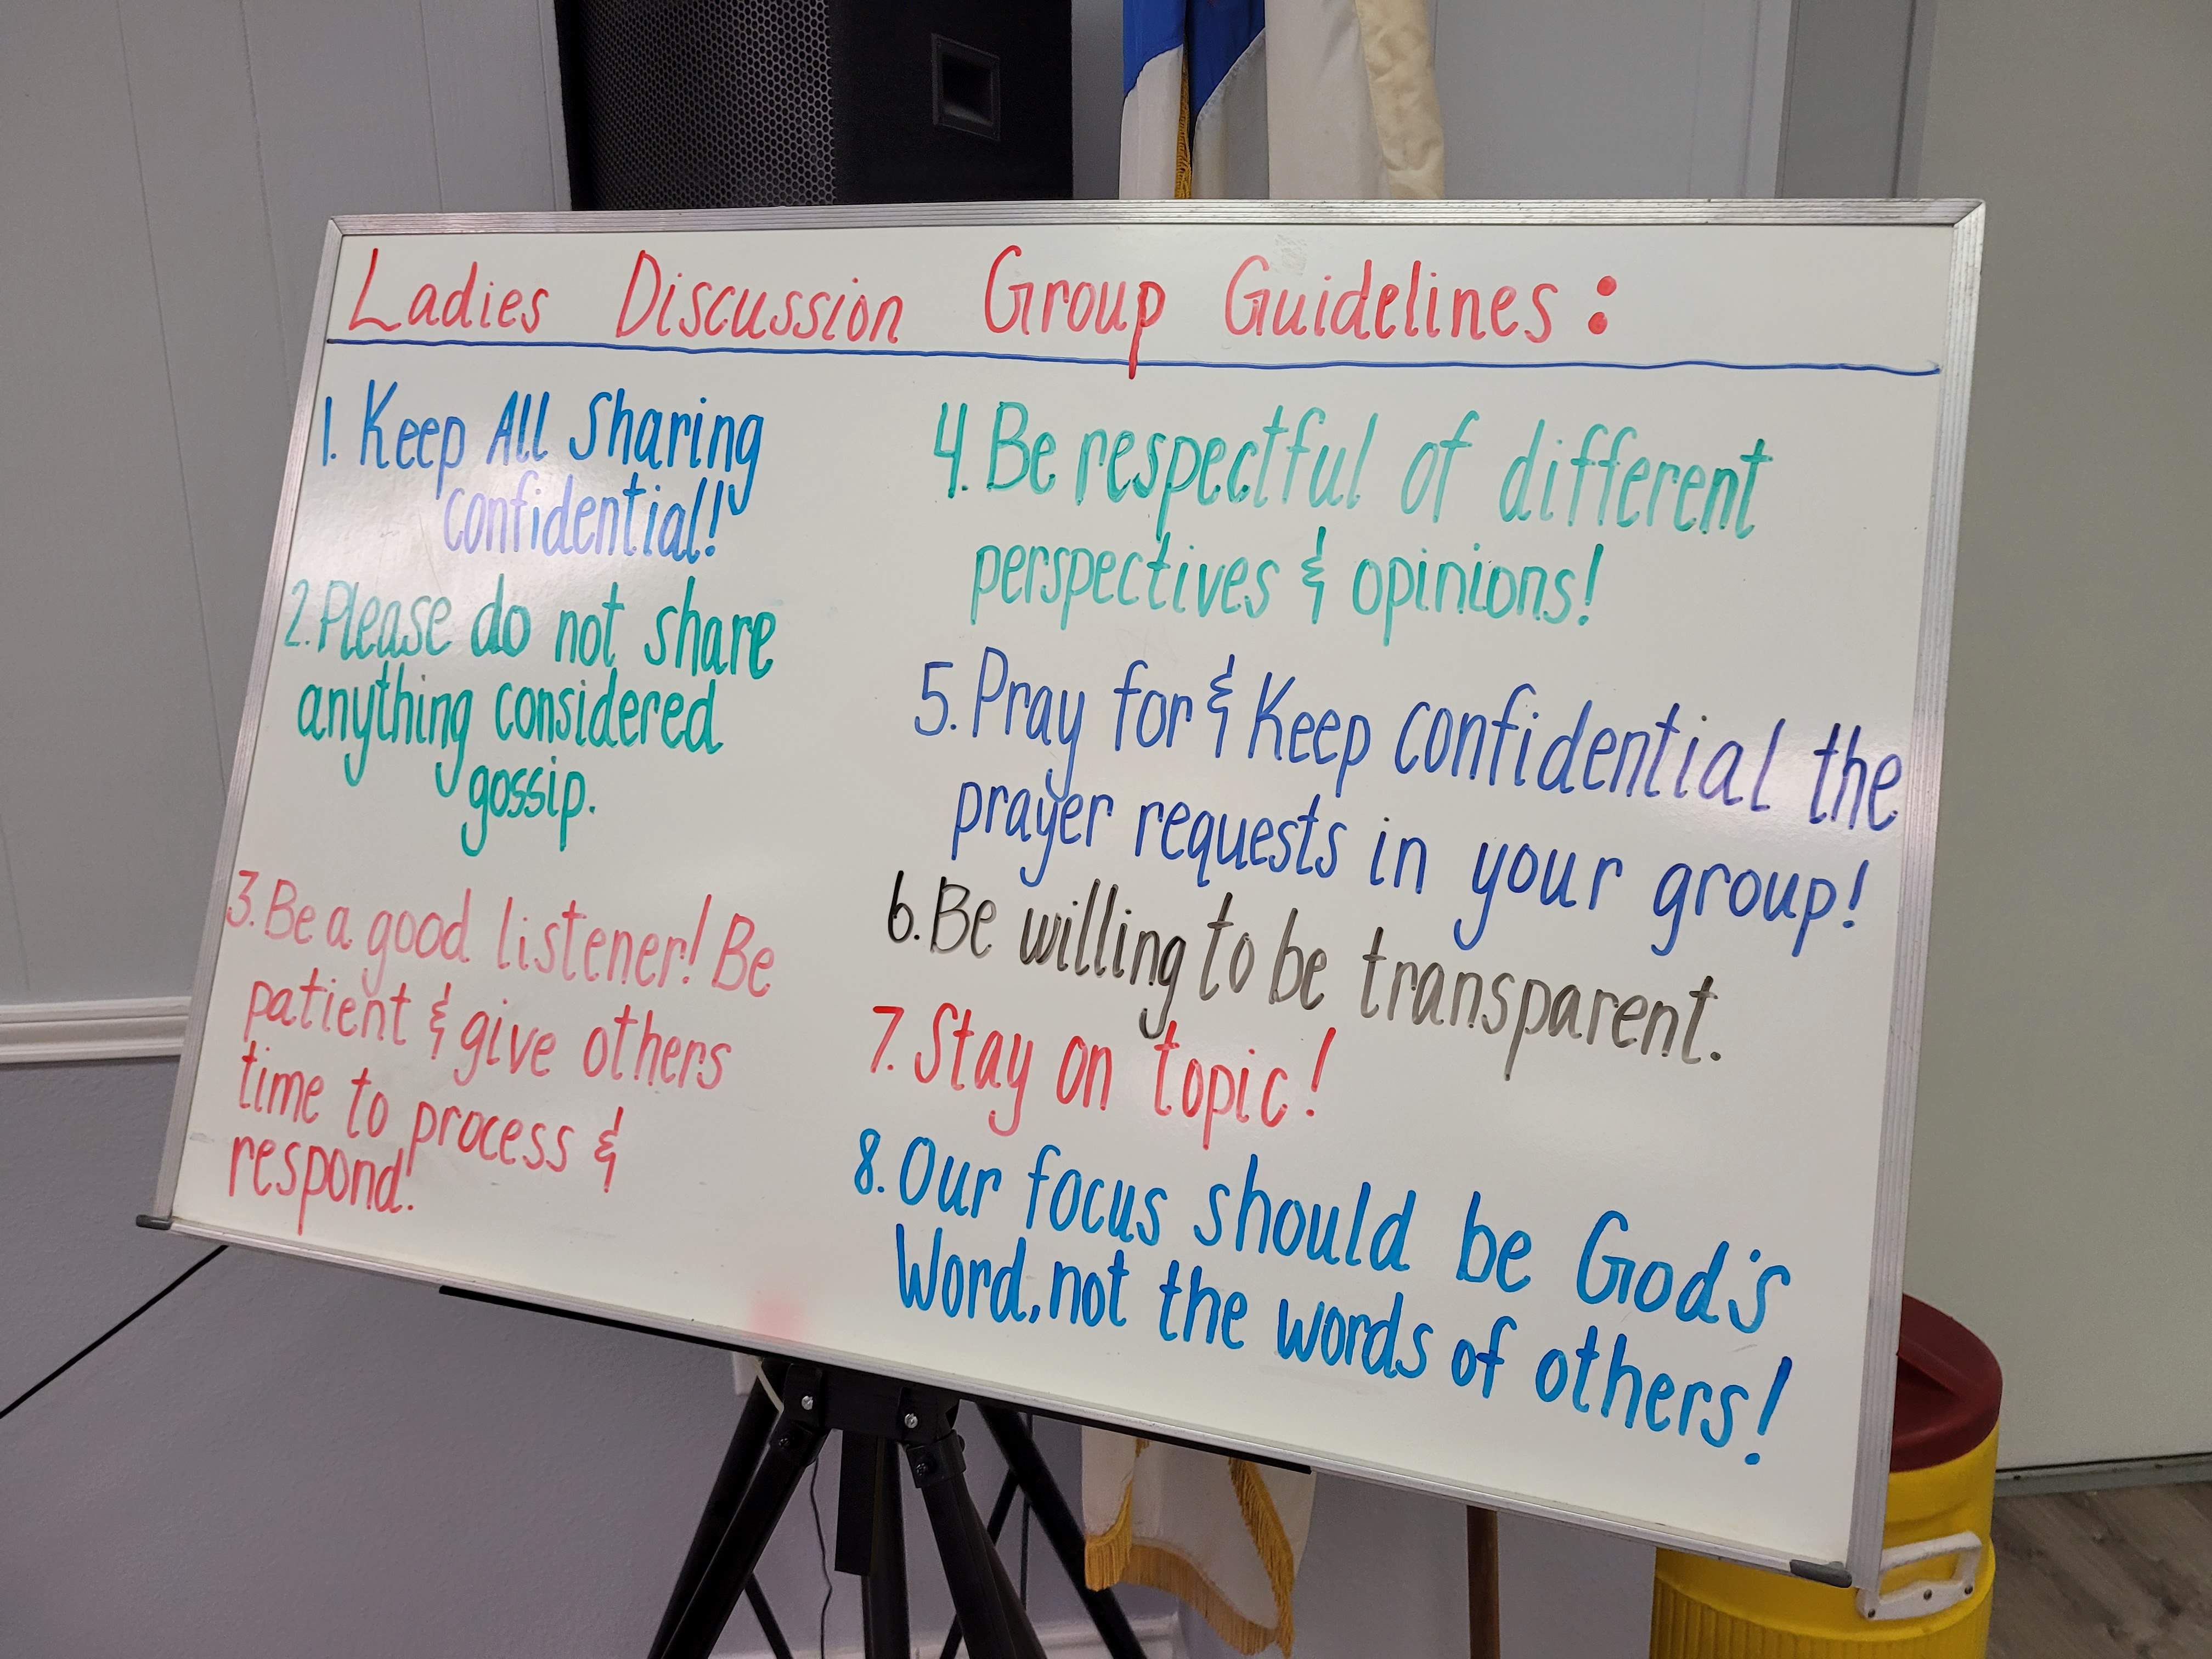 Ladies Discussion Group Guidelines:
1. Keep All Sharing
confidential!
2. Please do not share
anything considered
gossip.
3. Be a good listener! Be
patient & give others
time to process &
respond!
4. Be respectful of different
perspectives & opinions!
5. Pray for & Keep confidential the
prayer requests in your group!
6. Be willing to be transparent.
7. Stay on topic!
8. Our focus should be God's
Word, not the words of others!